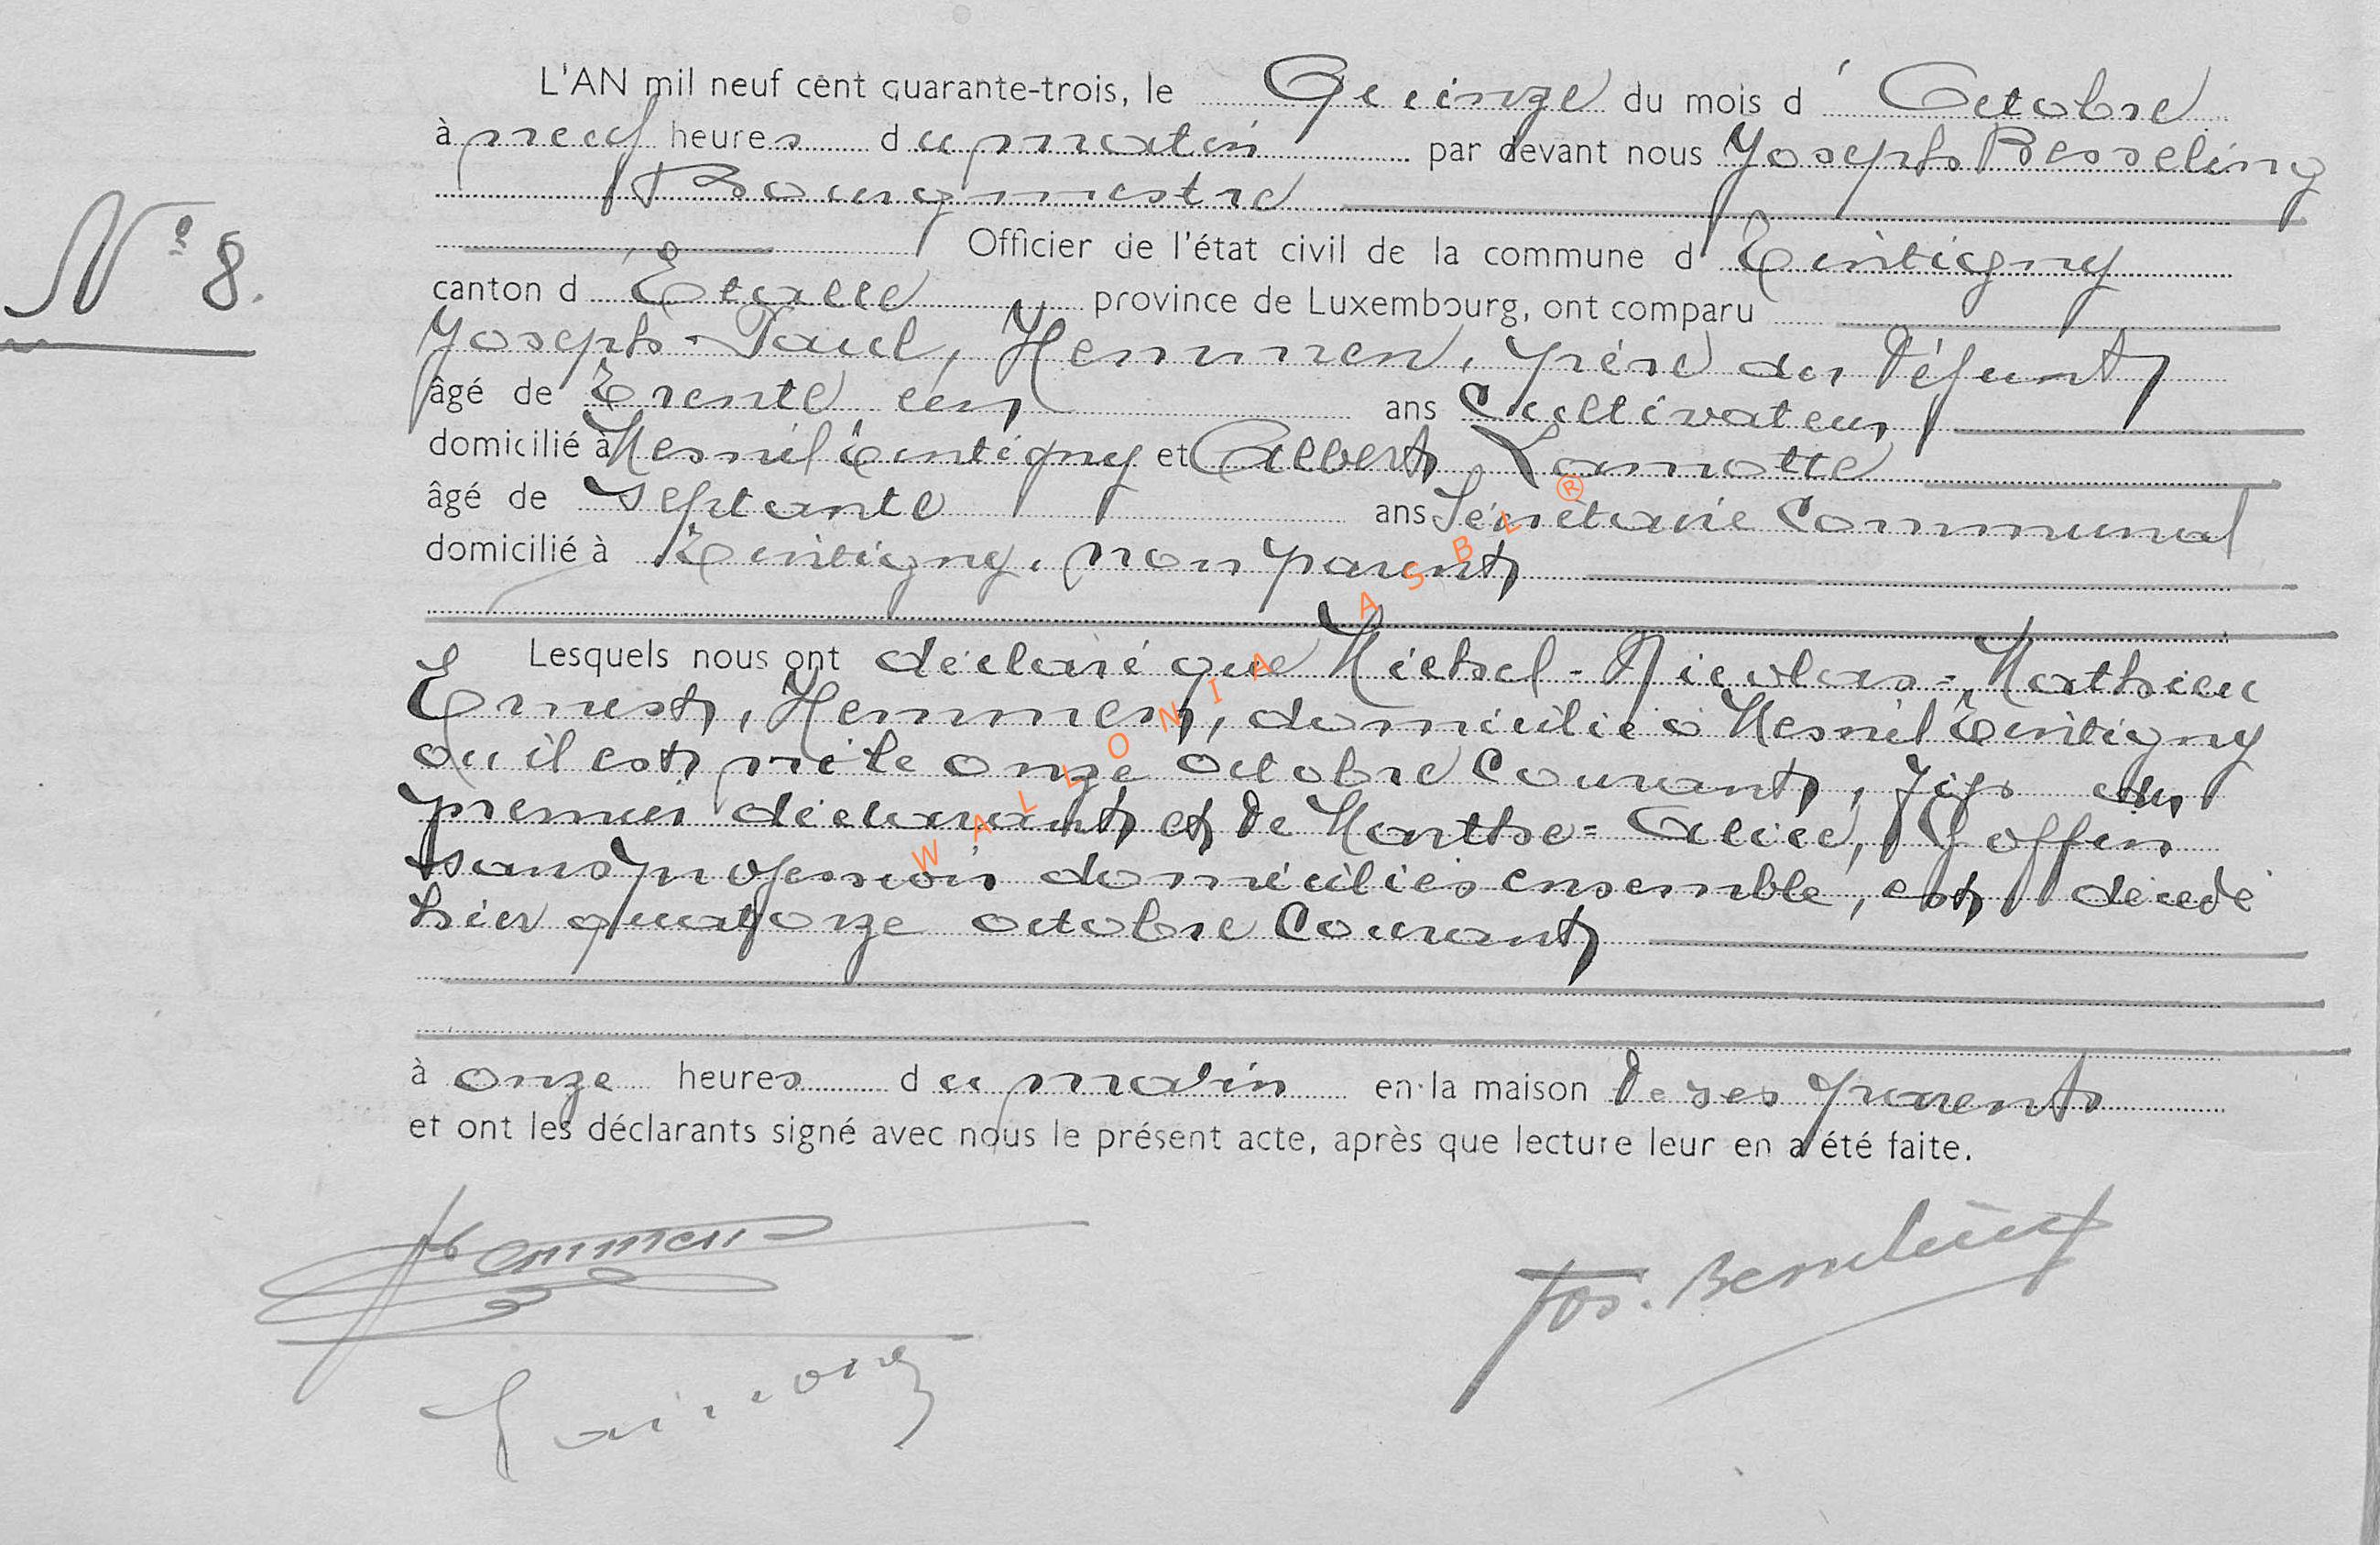 L'AN mil neuf cent quarante-trois, le Quinze du mois d' Octobre
à neuf heures du matin par devant nous Joseph Besseling
Bourgmestre
Officier de l'état civil de la commune d Tintigny
N° 8.
canton d' Etalle province de Luxembourg, ont comparu
Joseph-Paul, Hemmen, père du défunt
âgé de trente un ans Cultivateur
domicilié à Mesnil Tintigny et Albert Lamotte
âgé de septante ans Secrétaire Communal
domicilié à Tintigny. non parent
Lesquels nous ont déclaré que Michel-Nicolas-Mathieu
Ernest, Hemmen, domicilié à Mesnil Tintigny
ou il est né le onze octobre Courant, fils du
premier déclarant et de Marthe-Alice, Goffin
sans profession domiciliés ensemble, est décédé
hier quatorze octobre Courant
à onze heures du matin en la maison de ses parents
et ont les déclarants signé avec nous le présent acte, après que lecture leur en a été faite.
Hemmen
Jos. Besseling
WALLONIA ASBL ®